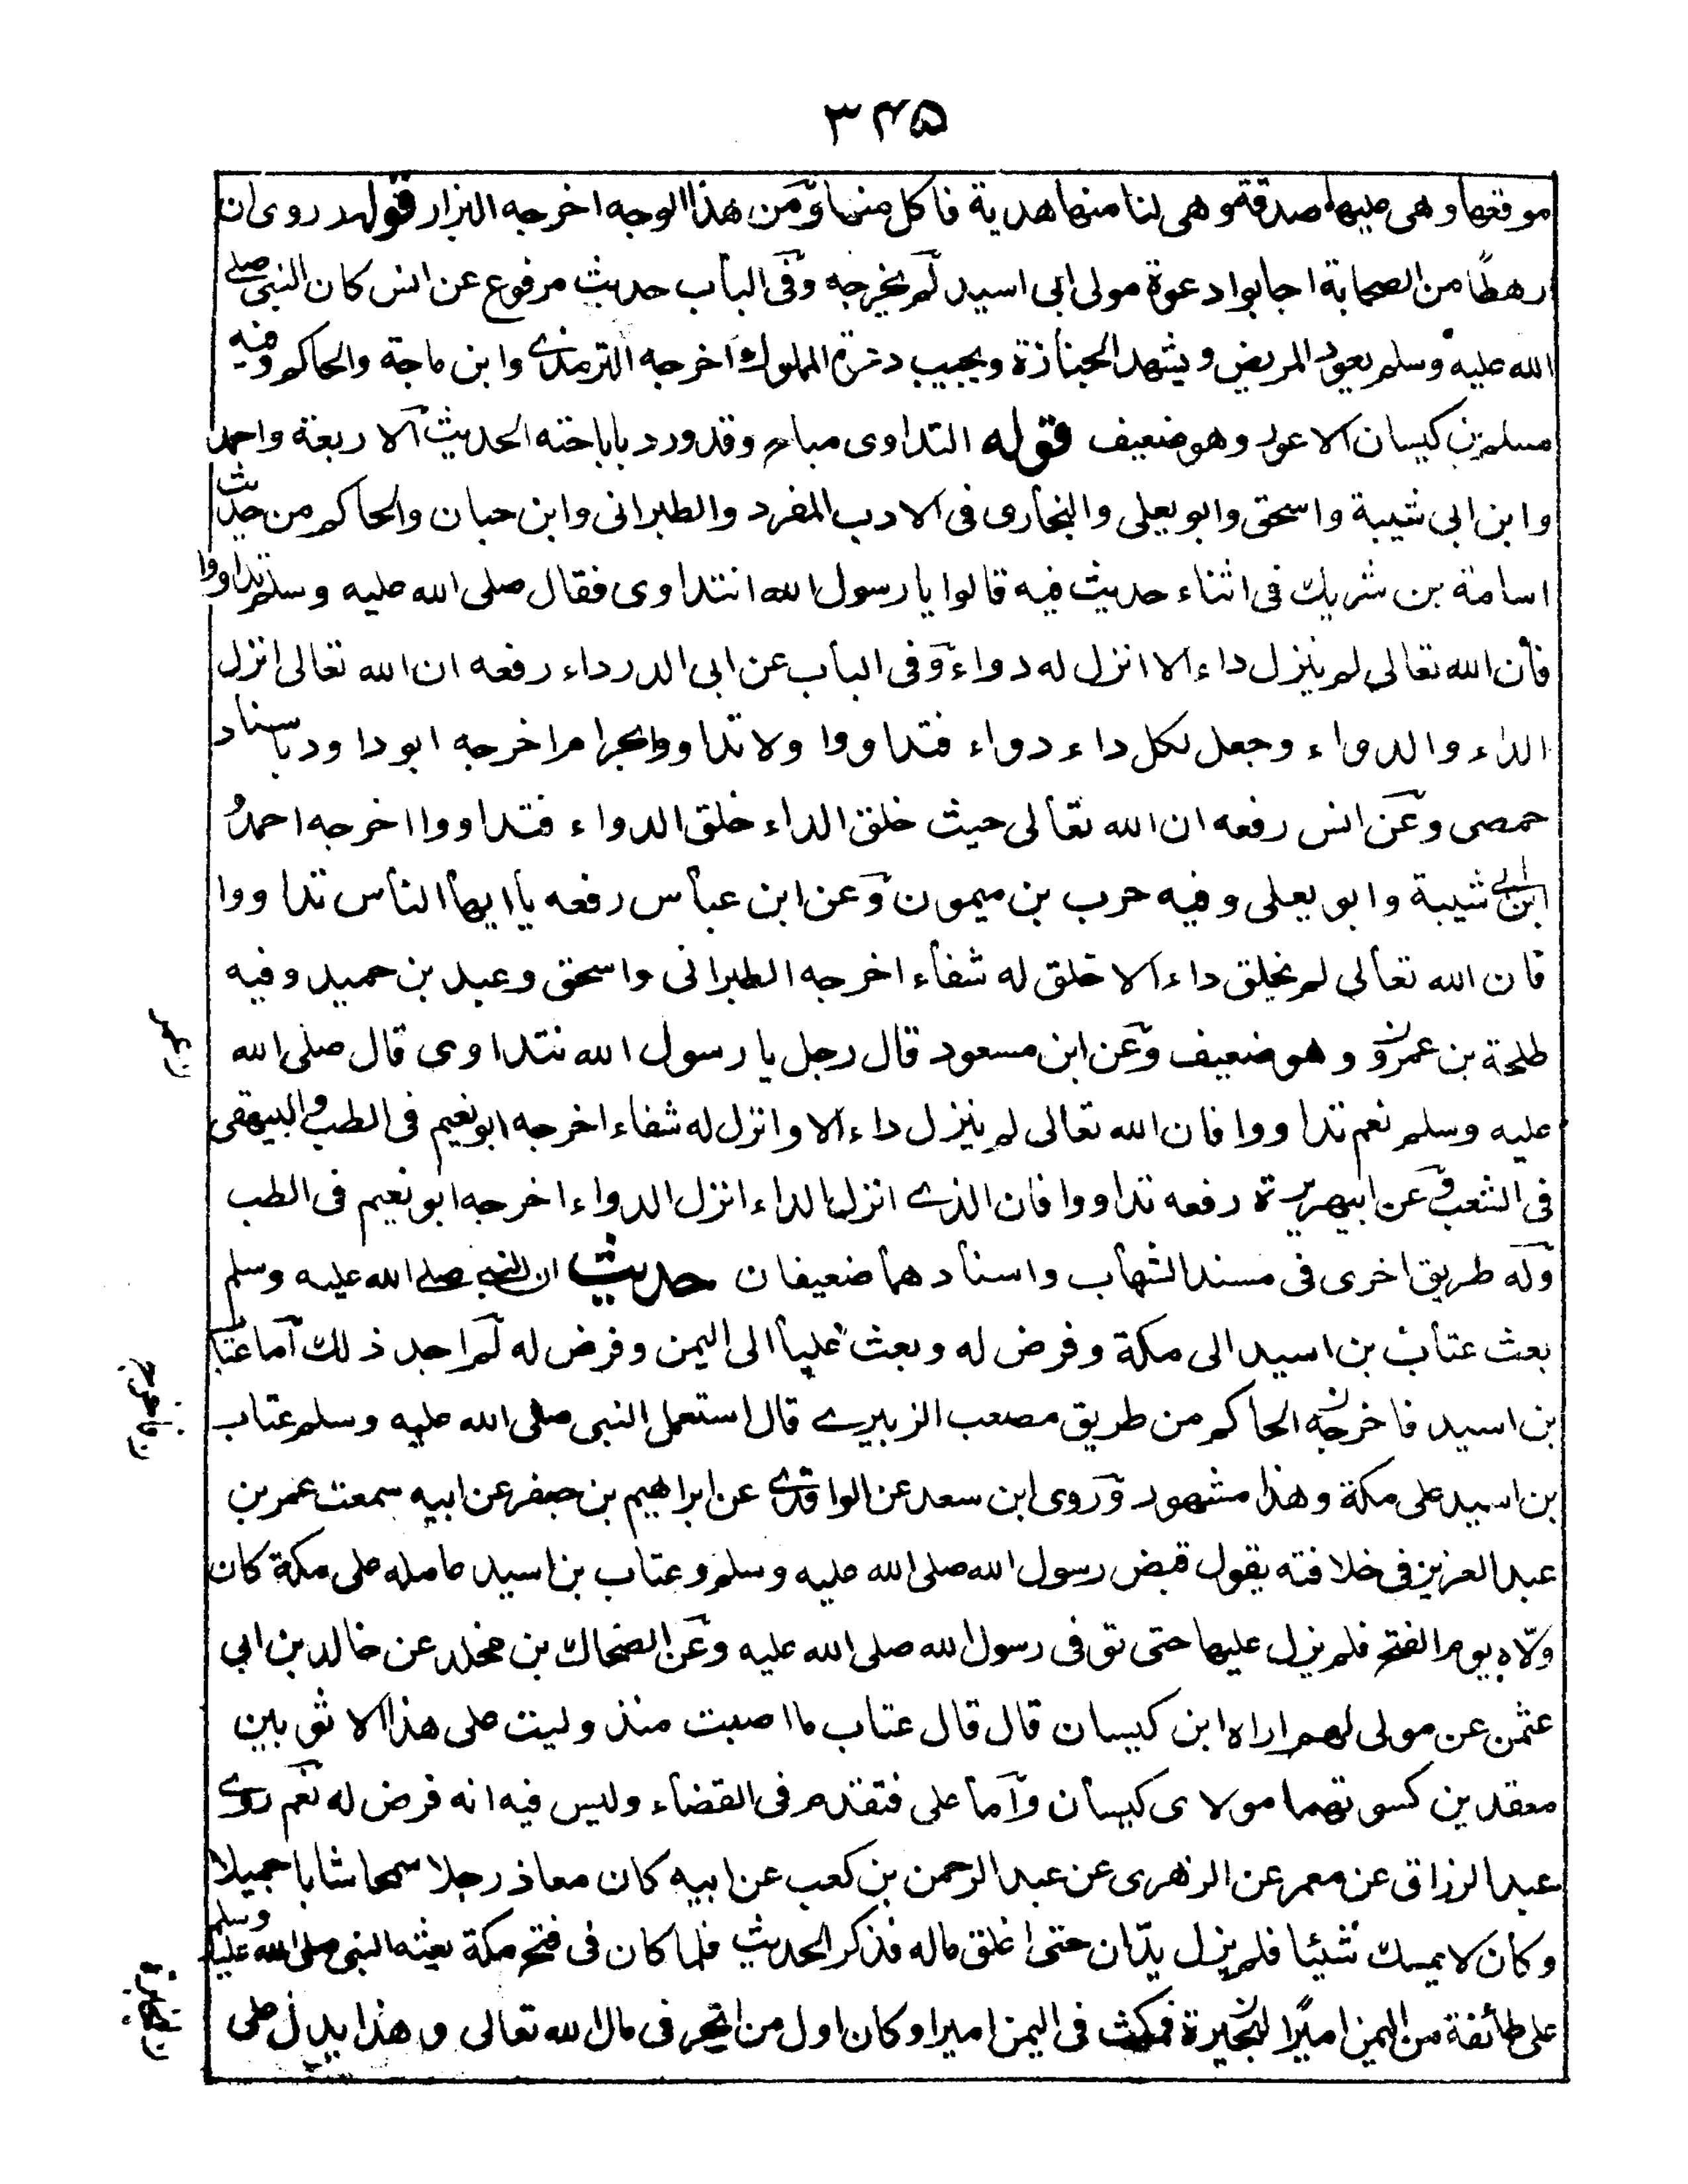 ۳۴۵
موقعها وهى عليها صدقة وهى لنا منها هدية فاكل منها ومن هذا الوجه اخرجه البزار قوله روى ان
رهطًا من الصحابة اجابوا دعوة مولى ابى اسيد لم يخرجه وفى الباب حديث مرفوع عن انس كان النبى صلے
الله عليه وسلم يعود المريض ويشهد الجنازة ويجيب دعوة المملوك اخرجه الترمذے وابن ماجة والحاكم وفيه
مسلم بن كيسان الاعور وهو ضعيف قوله التداوى مباح وقد ورد باباحته الحديث الاربعة واحمد
وابن ابى شيبة واسحق وابو يعلى والبخارى فى الادب المفرد والطبرانى وابن حبان والحاكم من حديث
اسامة بن شريك فى اثناء حديث فيه قالوا يا رسول الله انتداوى فقال صلى الله عليه وسلم تداووا
فان الله تعالى لم ينزل داء الا انزل له دواء وفى الباب عن ابى الدرداء رفعه ان الله تعالى انزل
الداء والدواء وجعل لكل داء دواء فتداووا ولا تداووا بحرام اخرجه ابو داود باسناد
حمصى وعن انس رفعه ان الله تعالى حيث خلق الداء خلق الدواء فتداووا اخرجه احمد و
ابن ابى شيبة وابو يعلى وفيه حرب بن ميمون وعن ابن عباس رفعه يا ايها الناس تداووا
فان الله تعالى لم يخلق داء الا خلق له شفاء اخرجه الطبرانى واسحق وعبد بن حميد وفيه
طلحة بن عمرو وهو ضعيف وعن ابن مسعود قال رجل يا رسول الله نتداوى قال صلى الله
ن عمر
عليه وسلم نعم تداووا فان الله تعالى لم ينزل داء الا وانزل له شفاء اخرجه ابو نعيم فى الطب والبيهقى
فى الشعب وعن ابيهريرة رفعه تداووا فان الذے انزل الداء انزل الدواء اخرجه ابو نعيم فى الطب
وله طريق اخرى فى مسند الشهاب واسنادهما ضعيفان حديث ان النبى صلے الله عليه وسلم
بعث عتاب بن اسيد الى مكة وفرض له وبعث عليا الى اليمن وفرض له لم اجد ذلك اما عتاب
بن اسيد فاخرجه الحاكم من طريق مصعب الزبيرے قال استعمل النبى صلى الله عليه وسلم عتاب
ن فاخرج
بن اسيد على مكة وهذا مشهور وروى ابن سعد عن الواقدے عن ابراهيم بن جعفر عن ابيه سمعت عمر بن
عبد العزيز فى خلافته يقول قبض رسول الله صلى الله عليه وسلم وعتاب بن اسيد عامله على مكة كان
ولّاه يوم الفتح فلم يزل عليها حتى توفى رسول الله صلى الله عليه وعن الضحاك بن مخلد عن خالد بن ابى
عثمن عن مولى لهم اراه ابن كيسان قال قال عتاب ما اصبت منذ وليت على هذا الا ثوبين
معقدين كسوتهما مولاى كيسان واما على فتقدم فى القضاء وليس فيه انه فرض له نعم روے
عبد الرزاق عن معمر عن الزهرى عن عبد الرحمن بن كعب عن ابيه كان معاذ رجلا سمحا شابا جميلا
وكان لا يمسك شيئا فلم يزل يدّان حتى اغلق ماله فذكر الحديث فلما كان فى فتح مكة بعثه النبى صلى الله عليه وسلم
على طائفة من اليمن اميرًا لتجبره فمكث فى اليمن اميرا وكان اول من اتجر فى مال الله تعالى وهذا يدل على